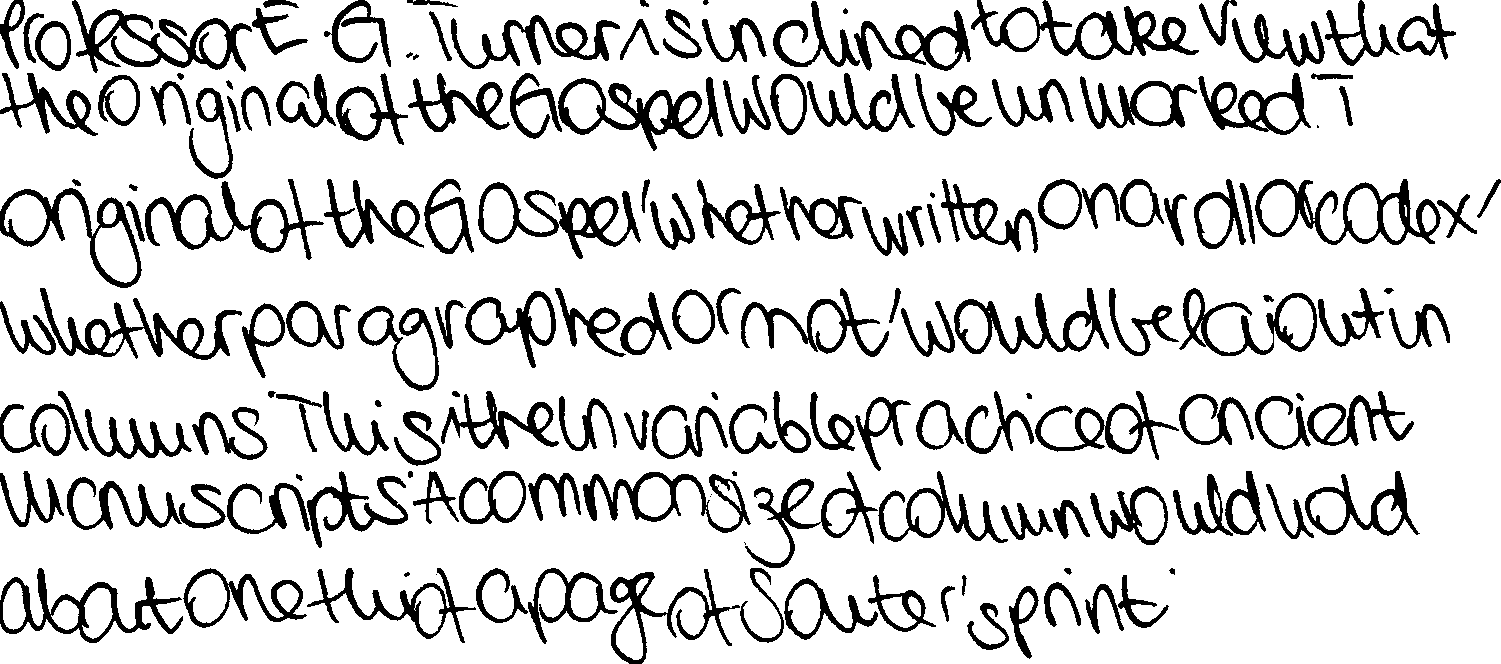 Professor E. G. Turner is inclined to take view that
the original of the Gospel would be unmarked. T
original of the Gospel, whether written on a roll or codex,
whether paragraphed or not, would be laiout in
columns This ithe invariable practice of ancient
manuscripts. A common size of column would hold
about one thiof a page of Souter's print.